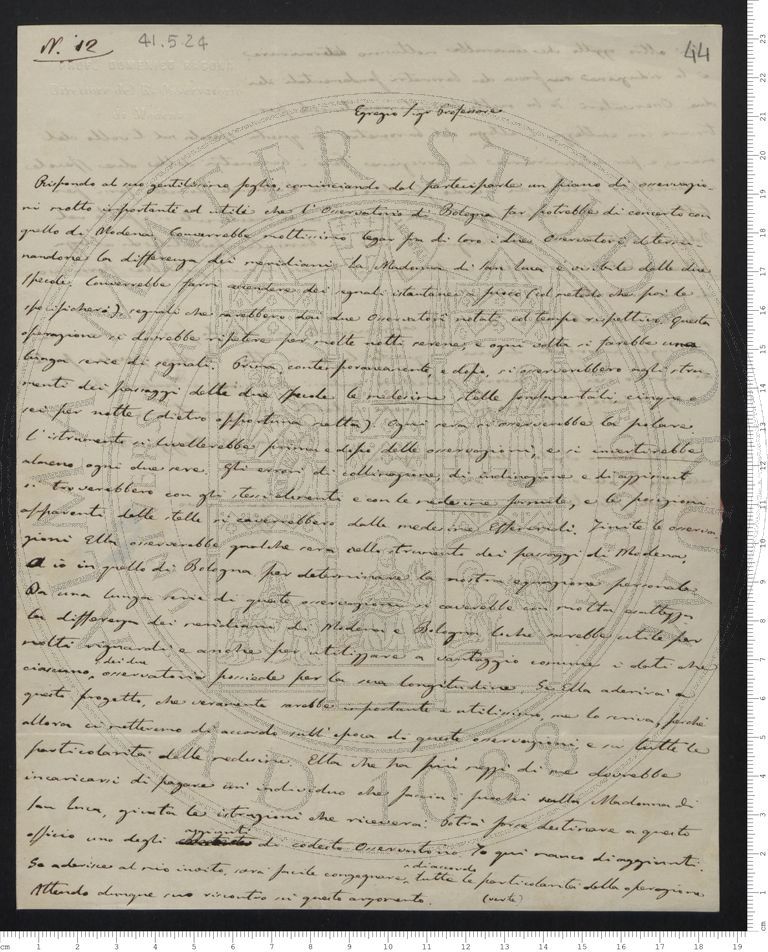 N.° 12
41.5.24
44
Egregio Sigr Professore
Rispondo al suo gentilissimo foglio, cominciando dal parteciparle un piano di osservazio-
ni molto importanti ed utili che l'Osservatorio di Bologna far potrebbe di concerto con
quello di Modena. Converrebbe moltissimo legar fra di loro i due Osservatorj determi-
nandone la differenza dei meridiani. La Madonna di San Luca è visibile dalle due
Specole. Converrebbe farvi accendere dei segnali istantanei a fuoco (col metodo che poi le
specificherò), segnali che sarebbero dai due Osservatorj notati col tempo rispettivo. Questa
operazione si dovrebbe ripetere per molte notti serene, e ogni volta si farebbe una
lunga serie di segnali. Prima, contemporaneamente, e dopo, si osserverebbero negli stru-
menti dei passaggi delle due Specole le medesime stelle fondamentali, cinque o
sei per notte (dietro opportuna scelta). Ogni sera si osserverebbe la polare,
l'istrumento si livellerebbe prima e dopo delle osservazioni, e si invertirebbe
almeno ogni due sere. Gli errori di collimazione, di inclinazione e di azzimut
si troverebbero con gli stessi elementi e con le medesime formule, e le posizioni
apparenti delle stelle si caverebbero dalle medesime Effemeridi. Finite le osserva-
zioni Ella osserverebbe qualche sera nello strumento dei passaggi di Modena,
ed io in quello di Bologna per determinare la nostra equazione personale.
Da una lunga serie di queste osservazioni si caverebbe con molta esattezza
la differenza dei meridiani di Modena e Bologna, loché sarebbe utile per
molti riguardi e anche per utilizzare a vantaggio comune i dati che
ciascuno dei due osservatorio possiede per la sua longitudine. Se Ella aderirà a
questo progetto, che veramente sarebbe importante e utilissimo, me lo scriva, perché
allora ci metteremo di accordo sull'epoca di queste osservazioni, e su tutte le
particolarità delle medesime. Ella che ha più mezzi di me dovrebbe
incaricarsi di pagare un individuo che faccia i fuochi sulla Madonna di
San Luca, giusta le istruzioni che riceverà. Potrà forse destinare a questo
officio uno degli aggiunti di codesto Osservatorio. Io qui manco di aggiunti.
Se aderisce al mio invito, sarà facile di accordo tutte le particolarità della operazione
Attendo dunque suo riscontro su questo argomento. (volti)